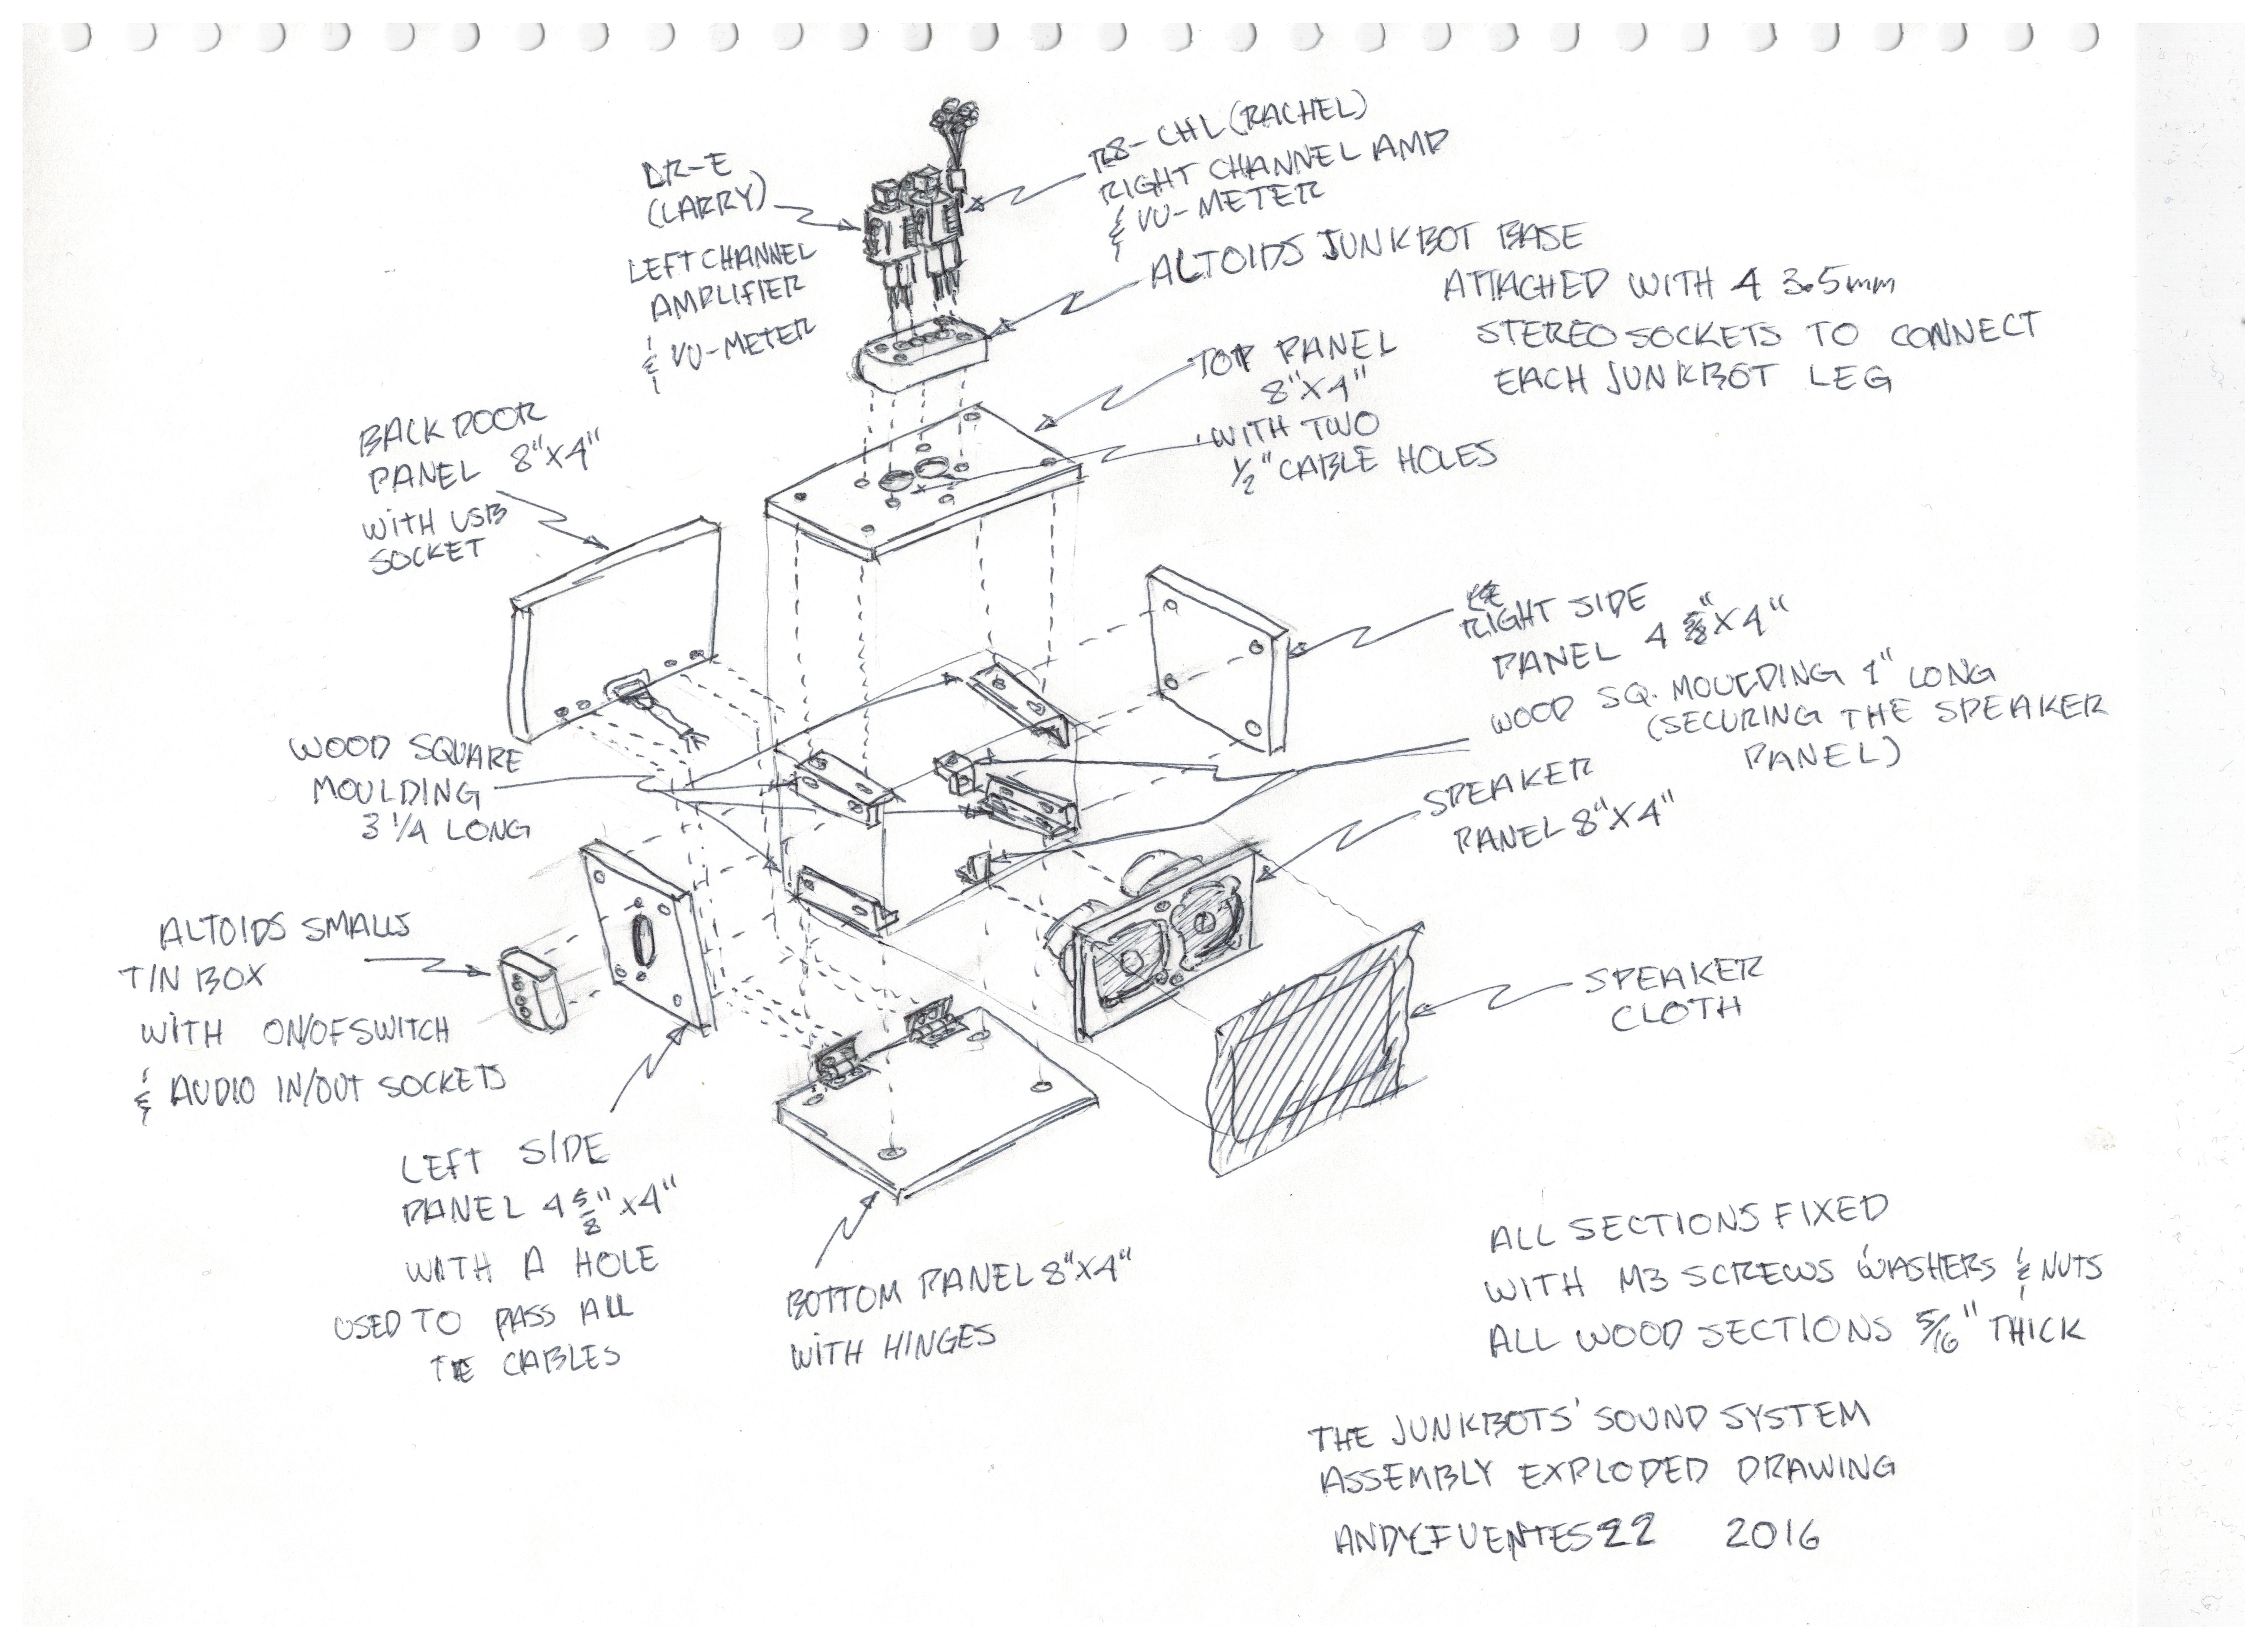 DR-E
(LARRY)
LEFT CHANNEL
AMPLIFIER
& VU-METER
R8-CHL (RACHEL)
RIGHT CHANNEL AMP
& VU-METER
ALTOIDS JUNKBOT BASE
ATTACHED WITH 4 3.5mm
STEREO SOCKETS TO CONNECT
EACH JUNKBOT LEG
TOP PANEL
8"X4"
WITH TWO
1/2" CABLE HOLES
BACK DOOR
PANEL 8"X4"
WITH USB
SOCKET
RIGHT SIDE
PANEL 4 5/8"X4"
WOOD SQ. MOULDING 1" LONG
(SECURING THE SPEAKER
PANEL)
WOOD SQUARE
MOULDING
3 1/4 LONG
SPEAKER
PANEL 8"X4"
ALTOIDS SMALLS
TIN BOX
WITH ON/OFSWITCH
& AUDIO IN/OUT SOCKETS
SPEAKER
CLOTH
LEFT SIDE
PANEL 4 5/8"X4"
WITH A HOLE
USED TO PASS ALL
TE CABLES
BOTTOM PANEL 8"X4"
WITH HINGES
ALL SECTIONS FIXED
WITH M3 SCREWS WASHERS & NUTS
ALL WOOD SECTIONS 5/16" THICK
THE JUNKBOTS' SOUND SYSTEM
ASSEMBLY EXPLODED DRAWING
ANDY_FUENTES22 2016